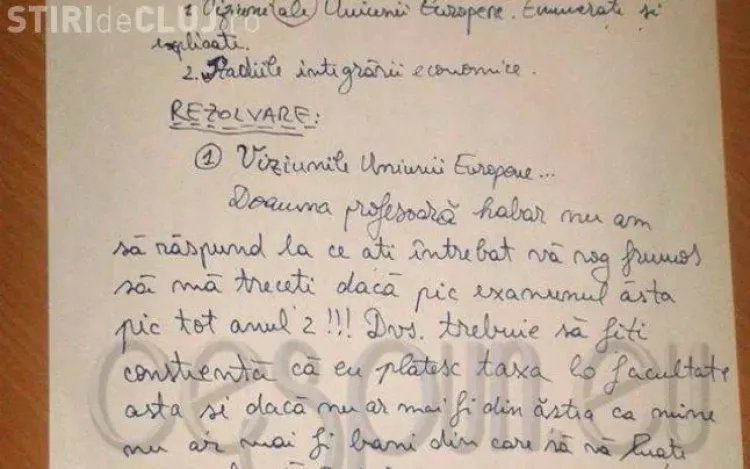 STIRIdeCLUJ.ro
1. Viziuni ale Uniunii Europene. Enumerate si
explicate.
2. Stadiile integrării economice.
REZOLVARE:
1 Viziunile Uniunii Europene...
Doamna profesoară habar nu am
să răspund la ce ati întrebat vă rog frumos
să mă treceti dacă pic examenul ăsta
pic tot anul 2!!! Dvs. trebuie să fiti
constientă că eu plătesc taxa la facultate
asta si dacă nu ar mai fi din ăstia ca mine
nu ar mai fi bani din care să vă luate
cespun.eu